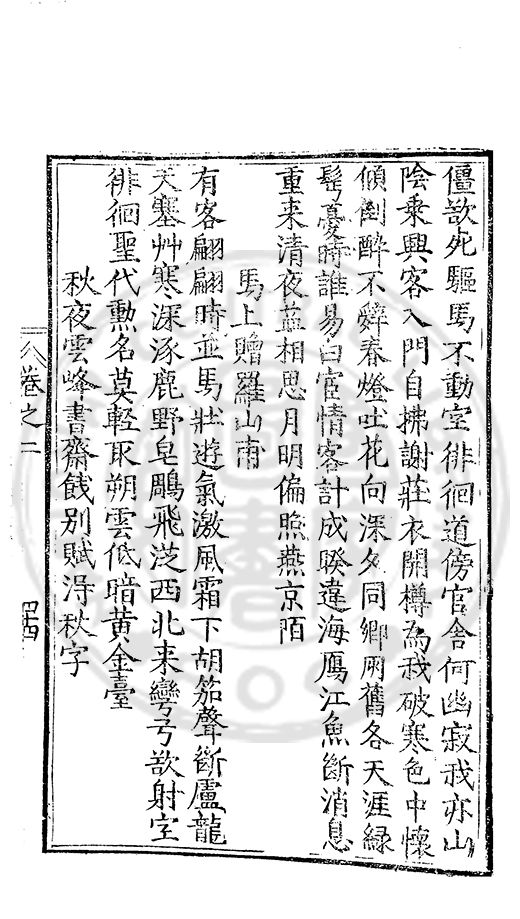 僵欲死驅馬不動空徘徊道傍官舍何幽寂我亦山
陰乗興客入門自拂謝莊衣開樽為我破寒色中懷
傾倒醉不辤春燈吐花向深夕同鄉兩舊各天涯緑
髩憂時誰易白宦情客計成睽違海鴈江魚斷消息
重来清夜葢相思月明偏照燕京陌
馬上贈羅山甫
有客翩翩時並馬壯遊氣激風霜下胡笳聲斷盧龍
天塞艸寒深涿鹿野皂鵰飛泛西北来彎弓欲射空
徘徊聖代勲名莫輕取朔雲低暗黄金臺
秋夜雲峰書齋餞别賦淂秋字
卷之二
四